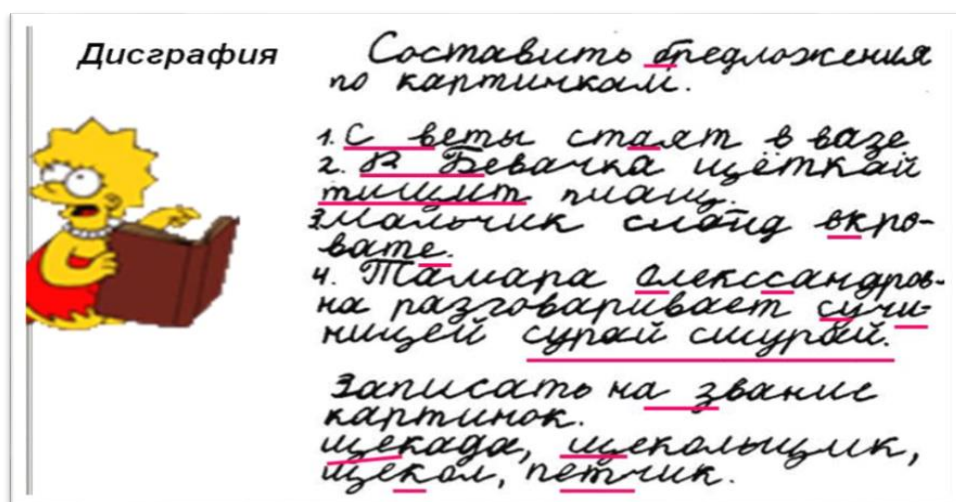 Дисграфия
Составить бредложения
по картинкам.
1. С веты стаят в вазе
2. В Бевачка щёткай
тищит плащ.
3 мальчик слоид вкро-
вате.
4. Тамара Олекссандров-
на разговаривает сучи-
ницей сурой смурбой.
Записать на звание
картинок.
щекада, щекольщик,
щекол, петчик.